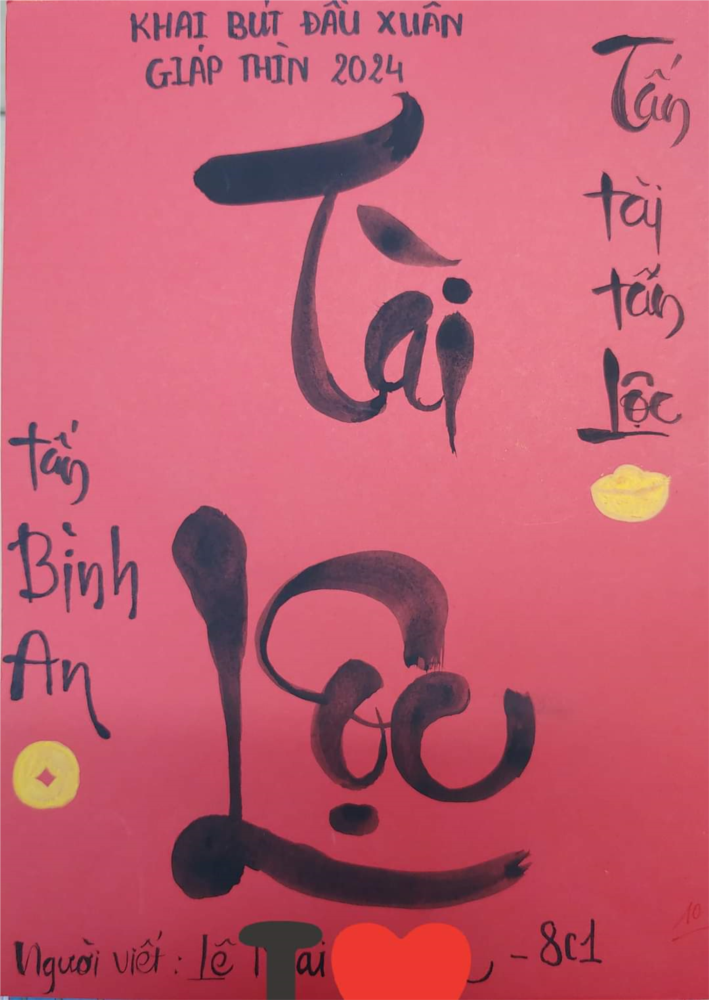 KHAI BÚT ĐẦU XUÂN
GIÁP THÌN 2024
Tài
Lộc
Tấn
tài
tấn
Lộc
tấn
Bình
An
Người viết: Lê - 8C1
10